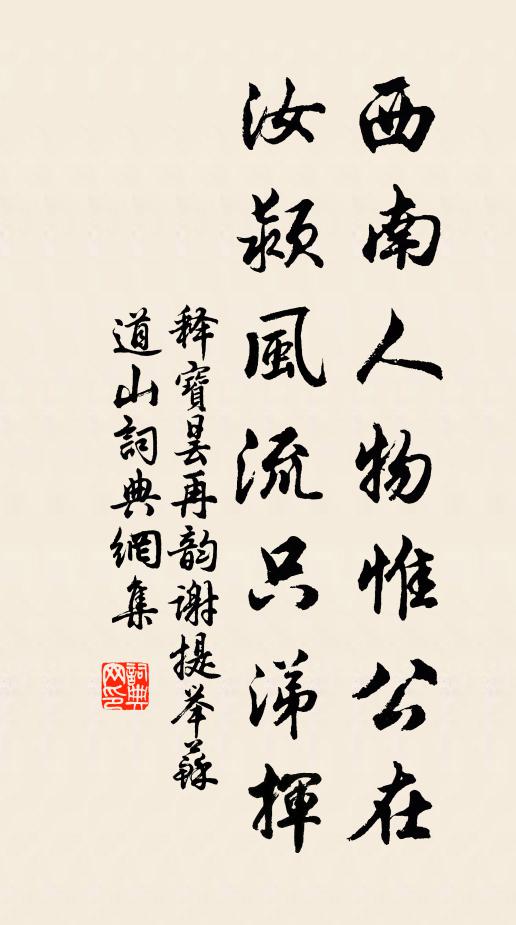 西南人物惟公在
汝颍風流只涕揮
释寶昙再韵谢提举蘇
道山詞典網集
詞典网印